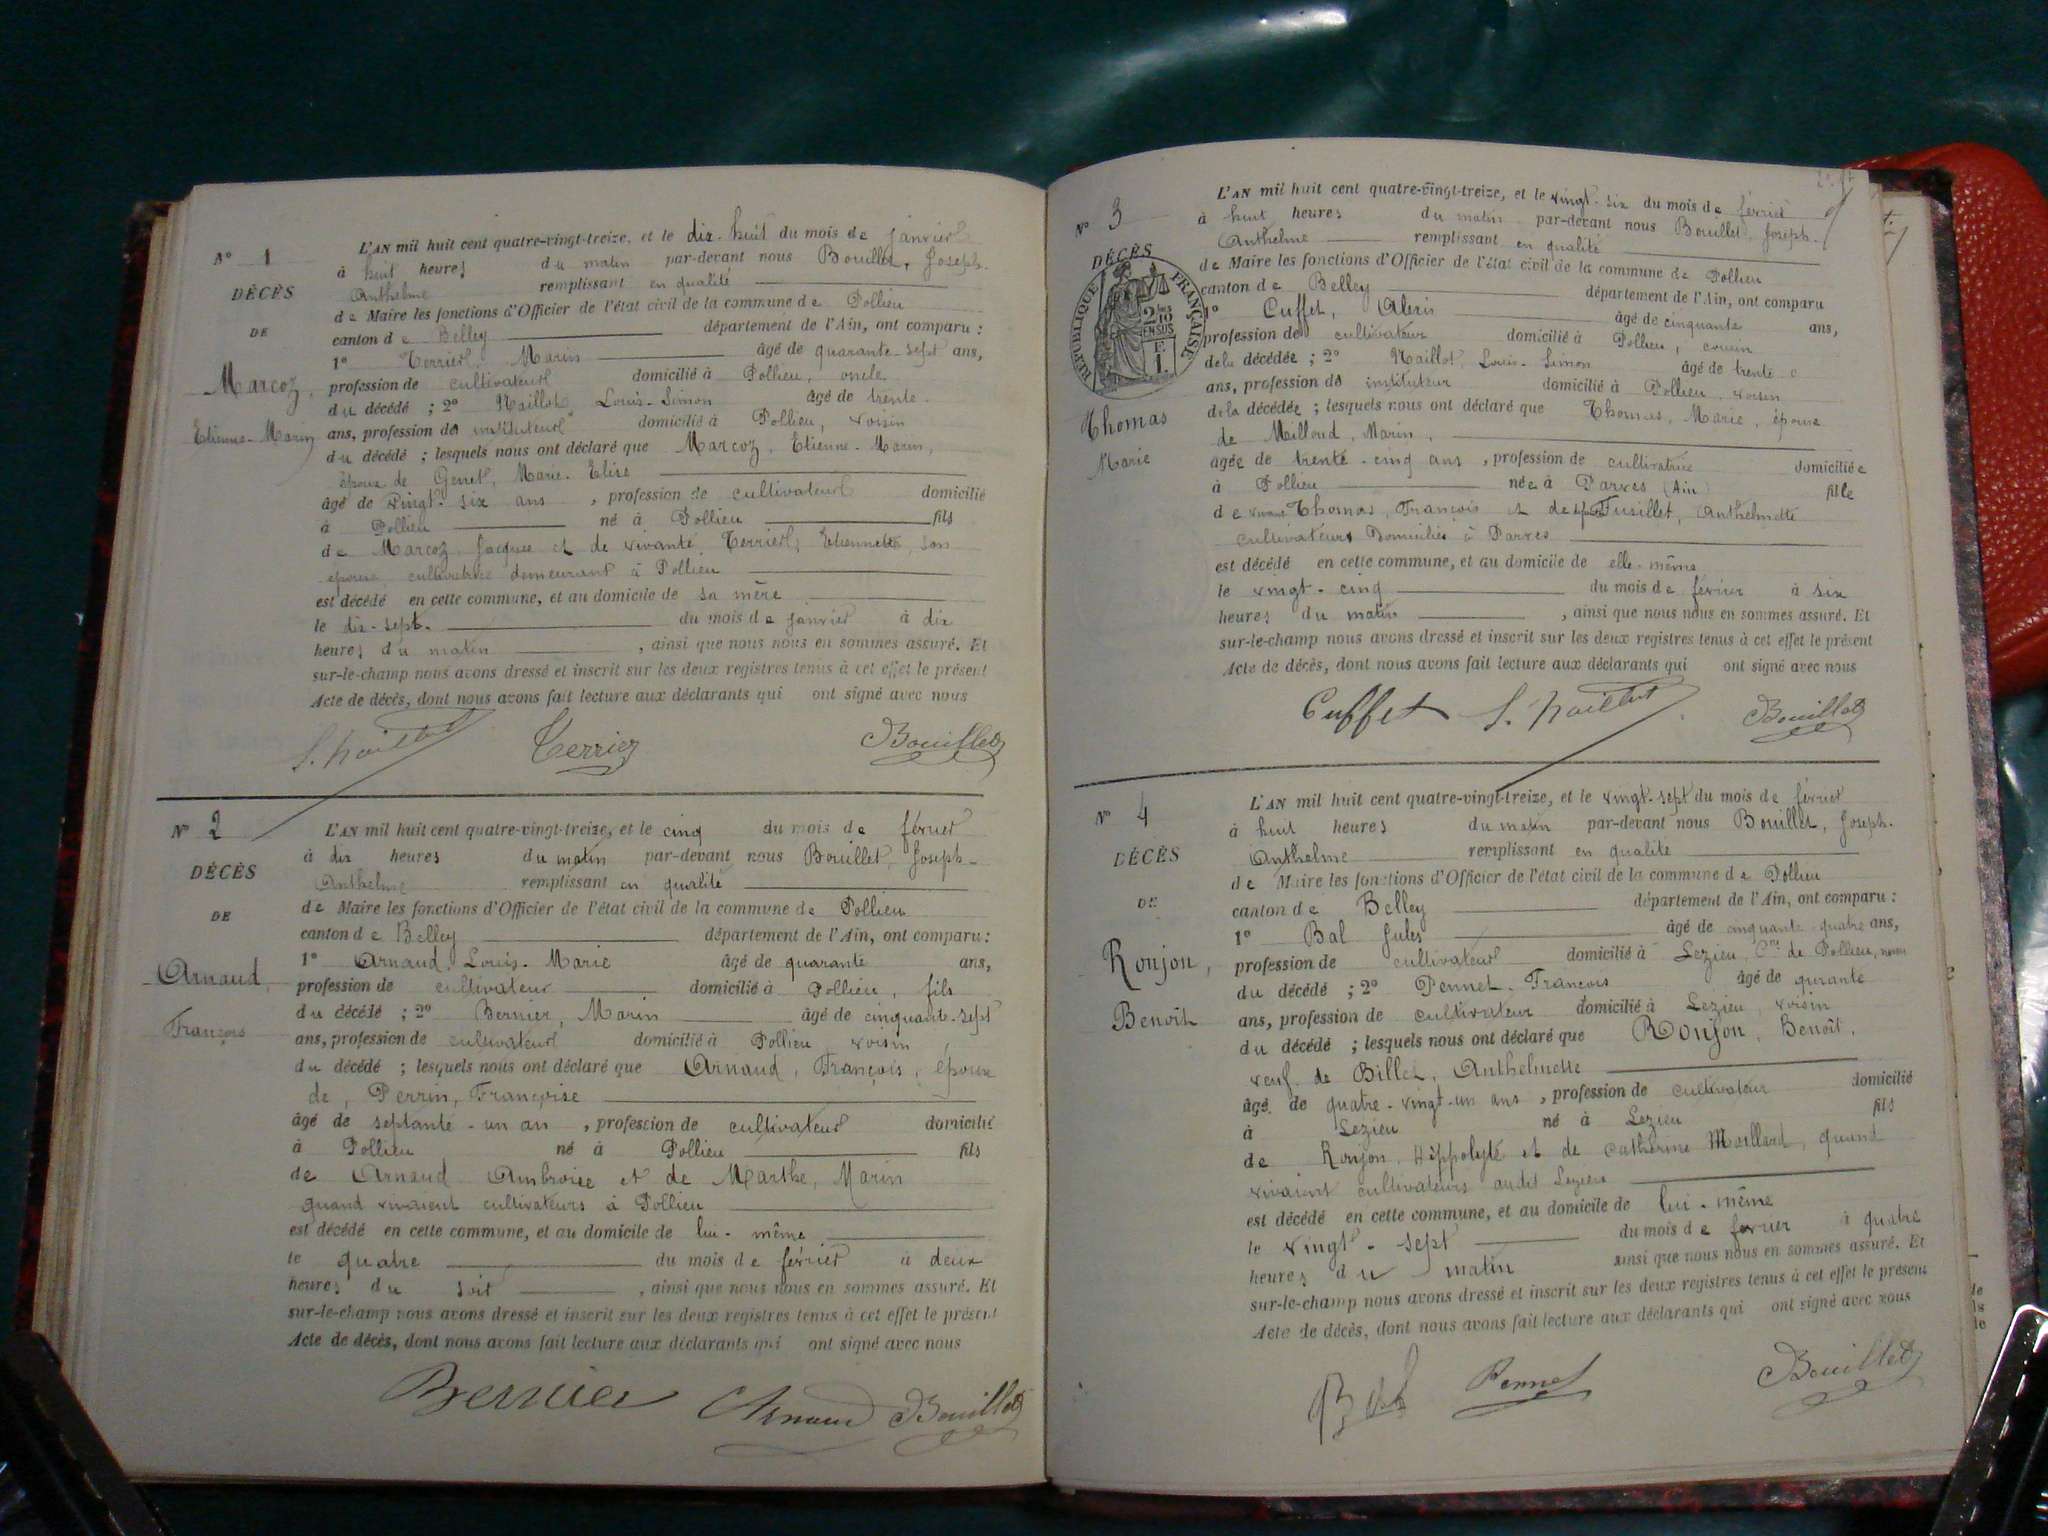 N° 1
DÉCÈS
DE
Marcoz,
Etienne-Marin
L'AN mil huit cent quatre-vingt-treize, et le dix-huit du mois de janvier
à huit heures du matin par-devant nous Bouillet, Joseph-
Anthelme remplissant en qualité
de Maire les fonctions d'Officier de l'état civil de la commune de Pollieu
canton de Belley département de l'Ain, ont comparu :
1° Terrier, Marin âgé de quarante-sept ans,
profession de cultivateur domicilié à Pollieu, oncle
du décédé ; 2° Naillot, Louis-Simon âgé de trente
ans, profession de instituteur domicilié à Pollieu, voisin
du décédé ; lesquels nous ont déclaré que Marcoz, Etienne-Marin,
époux de Genet, Marie-Elise
âgé de vingt-six ans, profession de cultivateur domicilié
à Pollieu né à Pollieu fils
de Marcoz, Jacques et de vivante Terrier, Etiennette son
épouse, cultivatrice demeurant à Pollieu
est décédé en cette commune, et au domicile de sa mère
le dix-sept du mois de janvier à dix
heures du matin, ainsi que nous nous en sommes assuré. Et
sur-le-champ nous avons dressé et inscrit sur les deux registres tenus à cet effet le présent
Acte de décès, dont nous avons fait lecture aux déclarants qui ont signé avec nous
L. Naillot Terrier Bouillet
N° 2
DÉCÈS
DE
Arnaud,
François
L'AN mil huit cent quatre-vingt-treize, et le cinq du mois de février
à dix heures du matin par-devant nous Bouillet, Joseph-
Anthelme remplissant en qualité
de Maire les fonctions d'Officier de l'état civil de la commune de Pollieu
canton de Belley département de l'Ain, ont comparu :
1° Arnaud, Louis-Marie âgé de quarante ans,
profession de cultivateur domicilié à Pollieu, fils
du décédé ; 2° Bernier, Marin âgé de cinquante-sept
ans, profession de cultivateur domicilié à Pollieu, voisin
du décédé ; lesquels nous ont déclaré que Arnaud, François, époux
de, Perrin, Françoise
âgé de septante-un an, profession de cultivateur domicilié
à Pollieu né à Pollieu fils
de Arnaud Ambroise et de Marthe, Marin
quand vivaient cultivateurs à Pollieu
est décédé en cette commune, et au domicile de lui-même
le quatre du mois de février à deux
heures du soir, ainsi que nous nous en sommes assuré. Et
sur-le-champ nous avons dressé et inscrit sur les deux registres tenus à cet effet le présent
Acte de décès, dont nous avons fait lecture aux déclarants qui ont signé avec nous
Bernier Arnaud Bouillet
N° 3
DÉCÈS
RÉPUBLIQUE FRANÇAISE
2/10 EN SUS
F.
1.
Thomas
Marie
L'AN mil huit cent quatre-vingt-treize, et le vingt-six du mois de février
à huit heures du matin par-devant nous Bouillet, Joseph-
Anthelme remplissant en qualité
de Maire les fonctions d'Officier de l'état civil de la commune de Pollieu
canton de Belley département de l'Ain, ont comparu
1° Cuffet, Alexis âgé de cinquante ans,
profession de cultivateur domicilié à Pollieu, cousin
de la décédée ; 2° Naillot, Louis-Simon âgé de trente
ans, profession de instituteur domicilié à Pollieu, voisin
de la décédée ; lesquels nous ont déclaré que Thomas, Marie, épouse
de Milloud, Marin,
âgée de trente-cinq ans, profession de cultivatrice domiciliée
à Pollieu née à Parves (Ain) fille
de Thomas, François et de Fusillet, Anthelmette
cultivateurs Domiciliés à Parves
est décédé en cette commune, et au domicile de elle-même
le vingt-cinq du mois de février à six
heures du matin, ainsi que nous nous en sommes assuré. Et
sur-le-champ nous avons dressé et inscrit sur les deux registres tenus à cet effet le présent
Acte de décès, dont nous avons fait lecture aux déclarants qui ont signé avec nous
Cuffet L. Naillot Bouillet
N° 4
DÉCÈS
DE
Roujon,
Benoît
L'AN mil huit cent quatre-vingt-treize, et le vingt-sept du mois de février
à huit heures du matin par-devant nous Bouillet, Joseph-
Anthelme remplissant en qualité
de Maire les fonctions d'Officier de l'état civil de la commune de Pollieu
canton de Belley département de l'Ain, ont comparu :
1° Bal Jules âgé de cinquante-quatre ans,
profession de cultivateur domicilié à Lezieu, Cne de Pollieu, neveu
du décédé ; 2° Pennet, François âgé de qurante
ans, profession de cultivateur domicilié à Lezieu, voisin
du décédé ; lesquels nous ont déclaré que Roujon, Benoît,
veuf de Billet, Anthelmette
âgé de quatre-vingt-un ans, profession de cultivateur domicilié
à Lezieu né à Lezieu fils
de Roujon, Hippolyte et de Catherine Maillard, quand
vivaient cultivateurs audit Lezieu
est décédé en cette commune, et au domicile de lui-même
le vingt-sept du mois de février à quatre
heures du matin ainsi que nous nous en sommes assuré. Et
sur-le-champ nous avons dressé et inscrit sur les deux registres tenus à cet effet le présent
Acte de décès, dont nous avons fait lecture aux déclarants qui ont signé avec nous
Bal Pennet Bouillet